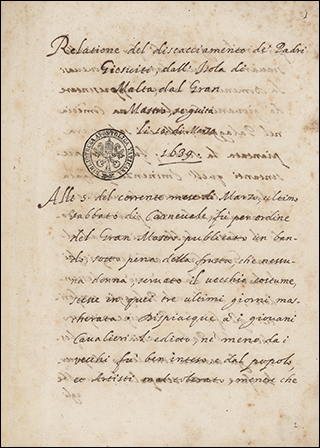 Relatione del discacciamento de' Padri
Giesuiti dall'Isola di
Malta dal Gran
Mastro, seguita
li di Marzo
1639.
BIBLIOTHECA APOSTOLICA VATICANA
Alle 5 del corrente mese di Marzo, ultimo
sabbato di Carnevale, fù per ordine
del Gran Mastro publicato un ban-
do, sotto pena della frusta che nessu-
na donna, servato il vecchio costume,
in quei tre ultimi giorni mas-
cherata. Dispiacque à i giovani
Cavalieri l'editto, nè meno da i
vecchi fù ben inteso, e dal popolo,
et Artisti mal tolerato, mentre che